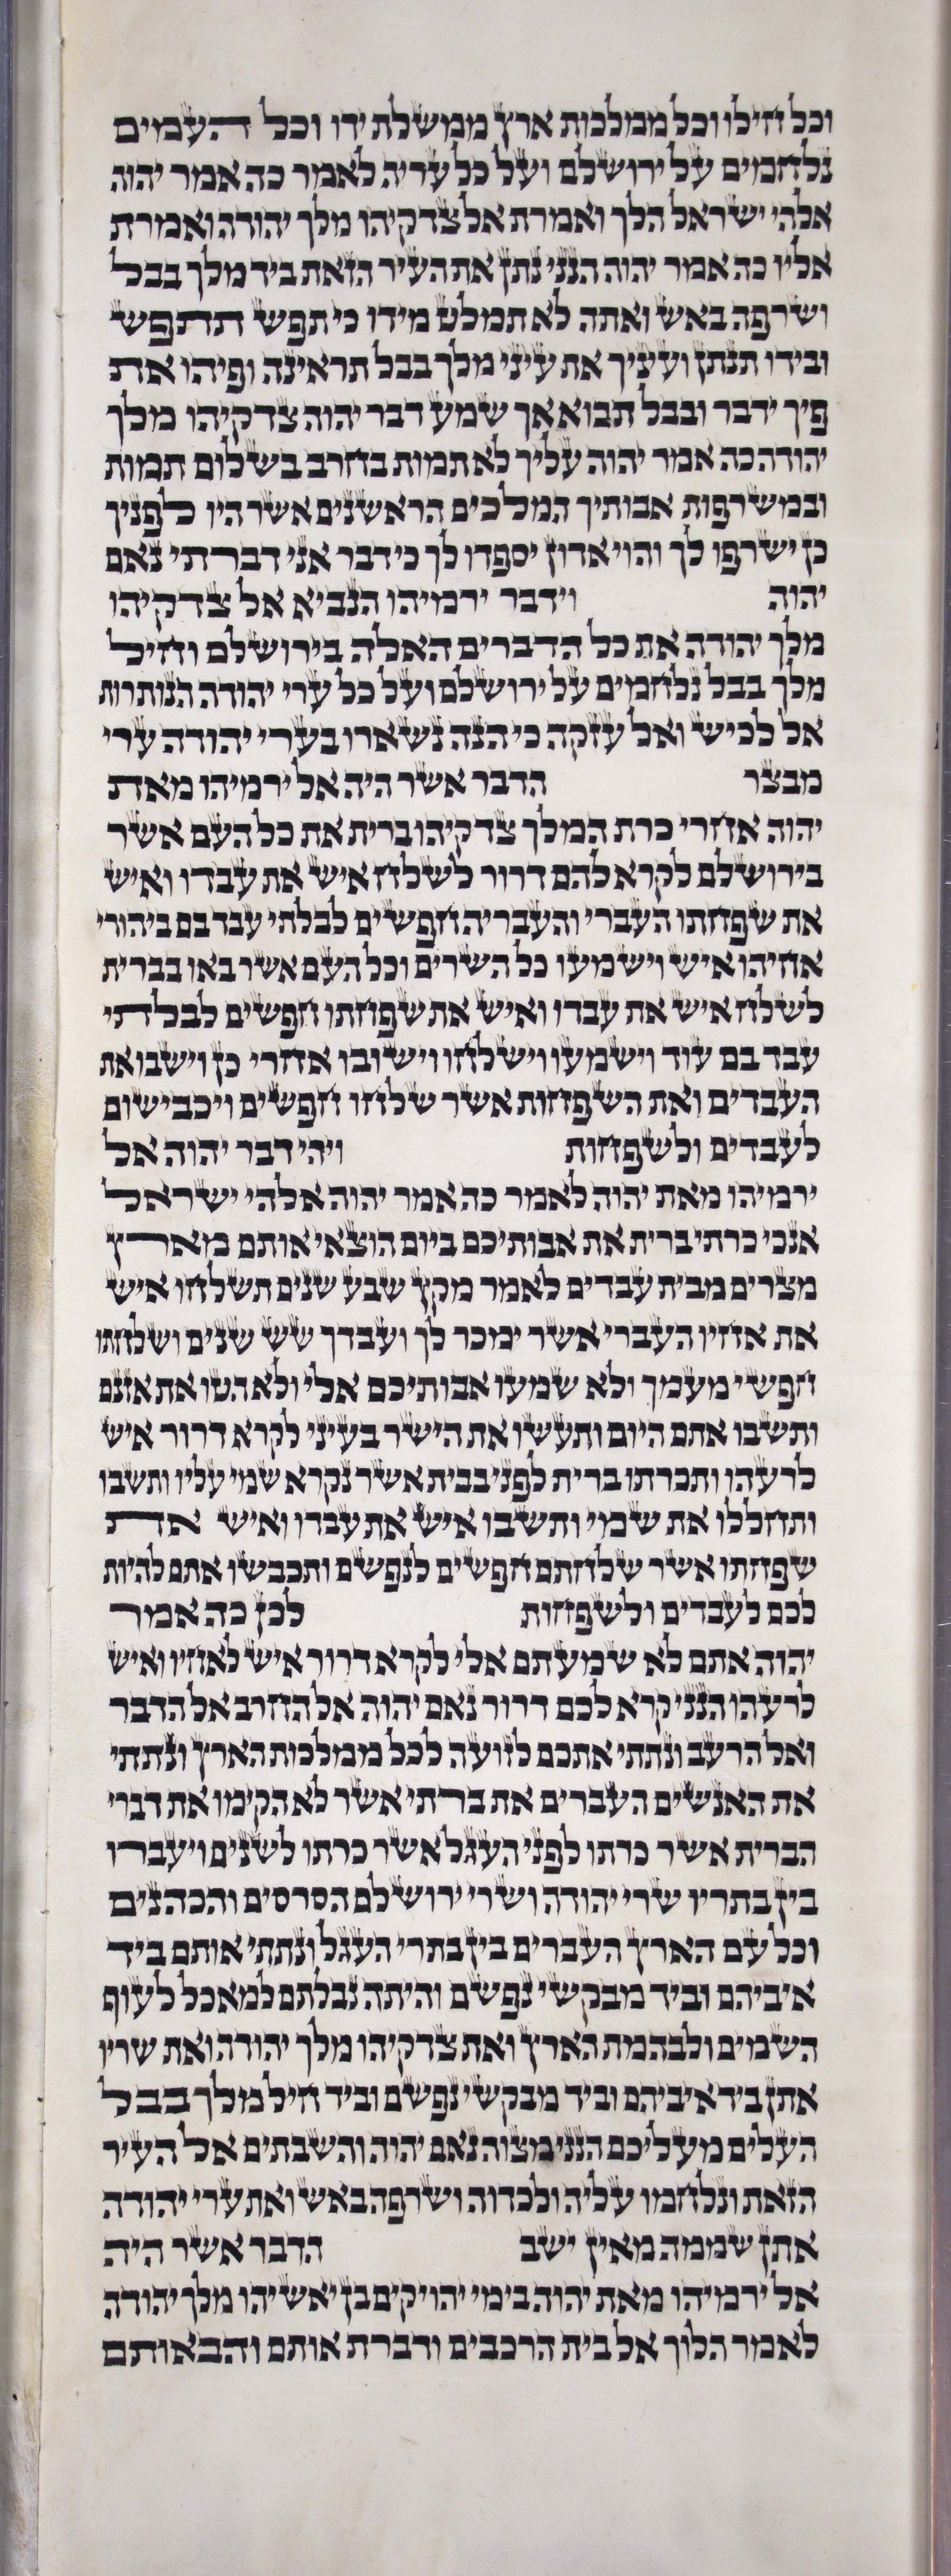 וכל חילו וכל ממלכות ארץ ממשלת ידו וכל העמים
נלחמים על ירושלם ועל כל עריה לאמר כה אמר יהוה
אלהי ישראל הלך ואמרת אל צדקיהו מלך יהודה ואמרת
אליו כה אמר יהוה הנני נתן את העיר הזאת ביד מלך בבל
ושרפה באש ואתה לא תמלט מידו כי תפש תתפש
ובידו תנתן ועיניך את עיני מלך בבל תראינה ופיהו את
פיך ידבר ובבל תבוא אך שמע דבר יהוה צדקיהו מלך
יהודה כה אמר יהוה עליך לא תמות בחרב בשלום תמות
ובמשרפות אבותיך המלכים הראשנים אשר היו לפניך
כן ישרפו לך והוי אדון יספדו לך כי דבר אני דברתי נאם
יהוה וידבר ירמיהו הנביא אל צדקיהו
מלך יהודה את כל הדברים האלה בירושלם וחיל
מלך בבל נלחמים על ירושלם ועל כל ערי יהודה הנותרות
אל לכיש ואל עזקה כי הנה נשארו בערי יהודה ערי
מבצר הדבר אשר היה אל ירמיהו מאת
יהוה אחרי כרת המלך צדקיהו ברית את כל העם אשר
בירושלם לקרא להם דרור לשלח איש את עבדו ואיש
את שפחתו העברי והעבריה חפשים לבלתי עבד בם ביהודי
אחיהו איש וישמעו כל השרים וכל העם אשר באו בברית
לשלח איש את עבדו ואיש את שפחתו חפשים לבלתי
עבד בם עוד וישמעו וישלחו וישובו אחרי כן וישבו את
העבדים ואת השפחות אשר שלחו חפשים ויכבישום
לעבדים ולשפחות ויהי דבר יהוה אל
ירמיהו מאת יהוה לאמר כה אמר יהוה אלהי ישראל
אנכי כרתי ברית את אבותיכם ביום הוצאי אותם מארץ
מצרים מבית עבדים לאמר מקץ שבע שנים תשלחו איש
את אחיו העברי אשר ימכר לך ועבדך שש שנים ושלחתו
חפשי מעמך ולא שמעו אבותיכם אלי ולא הטו את אזנם
ותשבו אתם היום ותעשו את הישר בעיני לקרא דרור איש
לרעהו ותכרתו ברית לפני בבית אשר נקרא שמי עליו ותשבו
ותחללו את שמי ותשבו איש את עבדו ואיש את
שפחתו אשר שלחתם חפשים לנפשם ותכבשו אתם להיות
לכם לעבדים ולשפחות לכן כה אמר
יהוה אתם לא שמעתם אלי לקרא דרור איש לאחיו ואיש
לרעהו הנני קרא לכם דרור נאם יהוה אל החרב אל הדבר
ואל הרעב ונתתי אתכם לזועה לכל ממלכות הארץ ונתתי
את האנשים העברים את ברתי אשר לא הקימו את דברי
הברית אשר כרתו לפני העגל אשר כרתו לשנים ויעברו
בין בתריו שרי יהודה ושרי ירושלם הסרסים והכהנים
וכל עם הארץ העברים בין בתרי העגל ונתתי אותם ביד
איביהם וביד מבקשי נפשם והיתה נבלתם למאכל לעוף
השמים ולבהמת הארץ ואת צדקיהו מלך יהודה ואת שריו
אתן ביד איביהם וביד מבקשי נפשם וביד חיל מלך בבל
העלים מעליכם הנני מצוה נאם יהוה והשבתים אל העיר
הזאת ונלחמו עליה ולכדוה ושרפה באש ואת ערי יהודה
אתן שממה מאין ישב הדבר אשר היה
אל ירמיהו מאת יהוה בימי יהויקים בן יאשיהו מלך יהודה
לאמר הלוך אל בית הרכבים ודברת אותם והבאותם